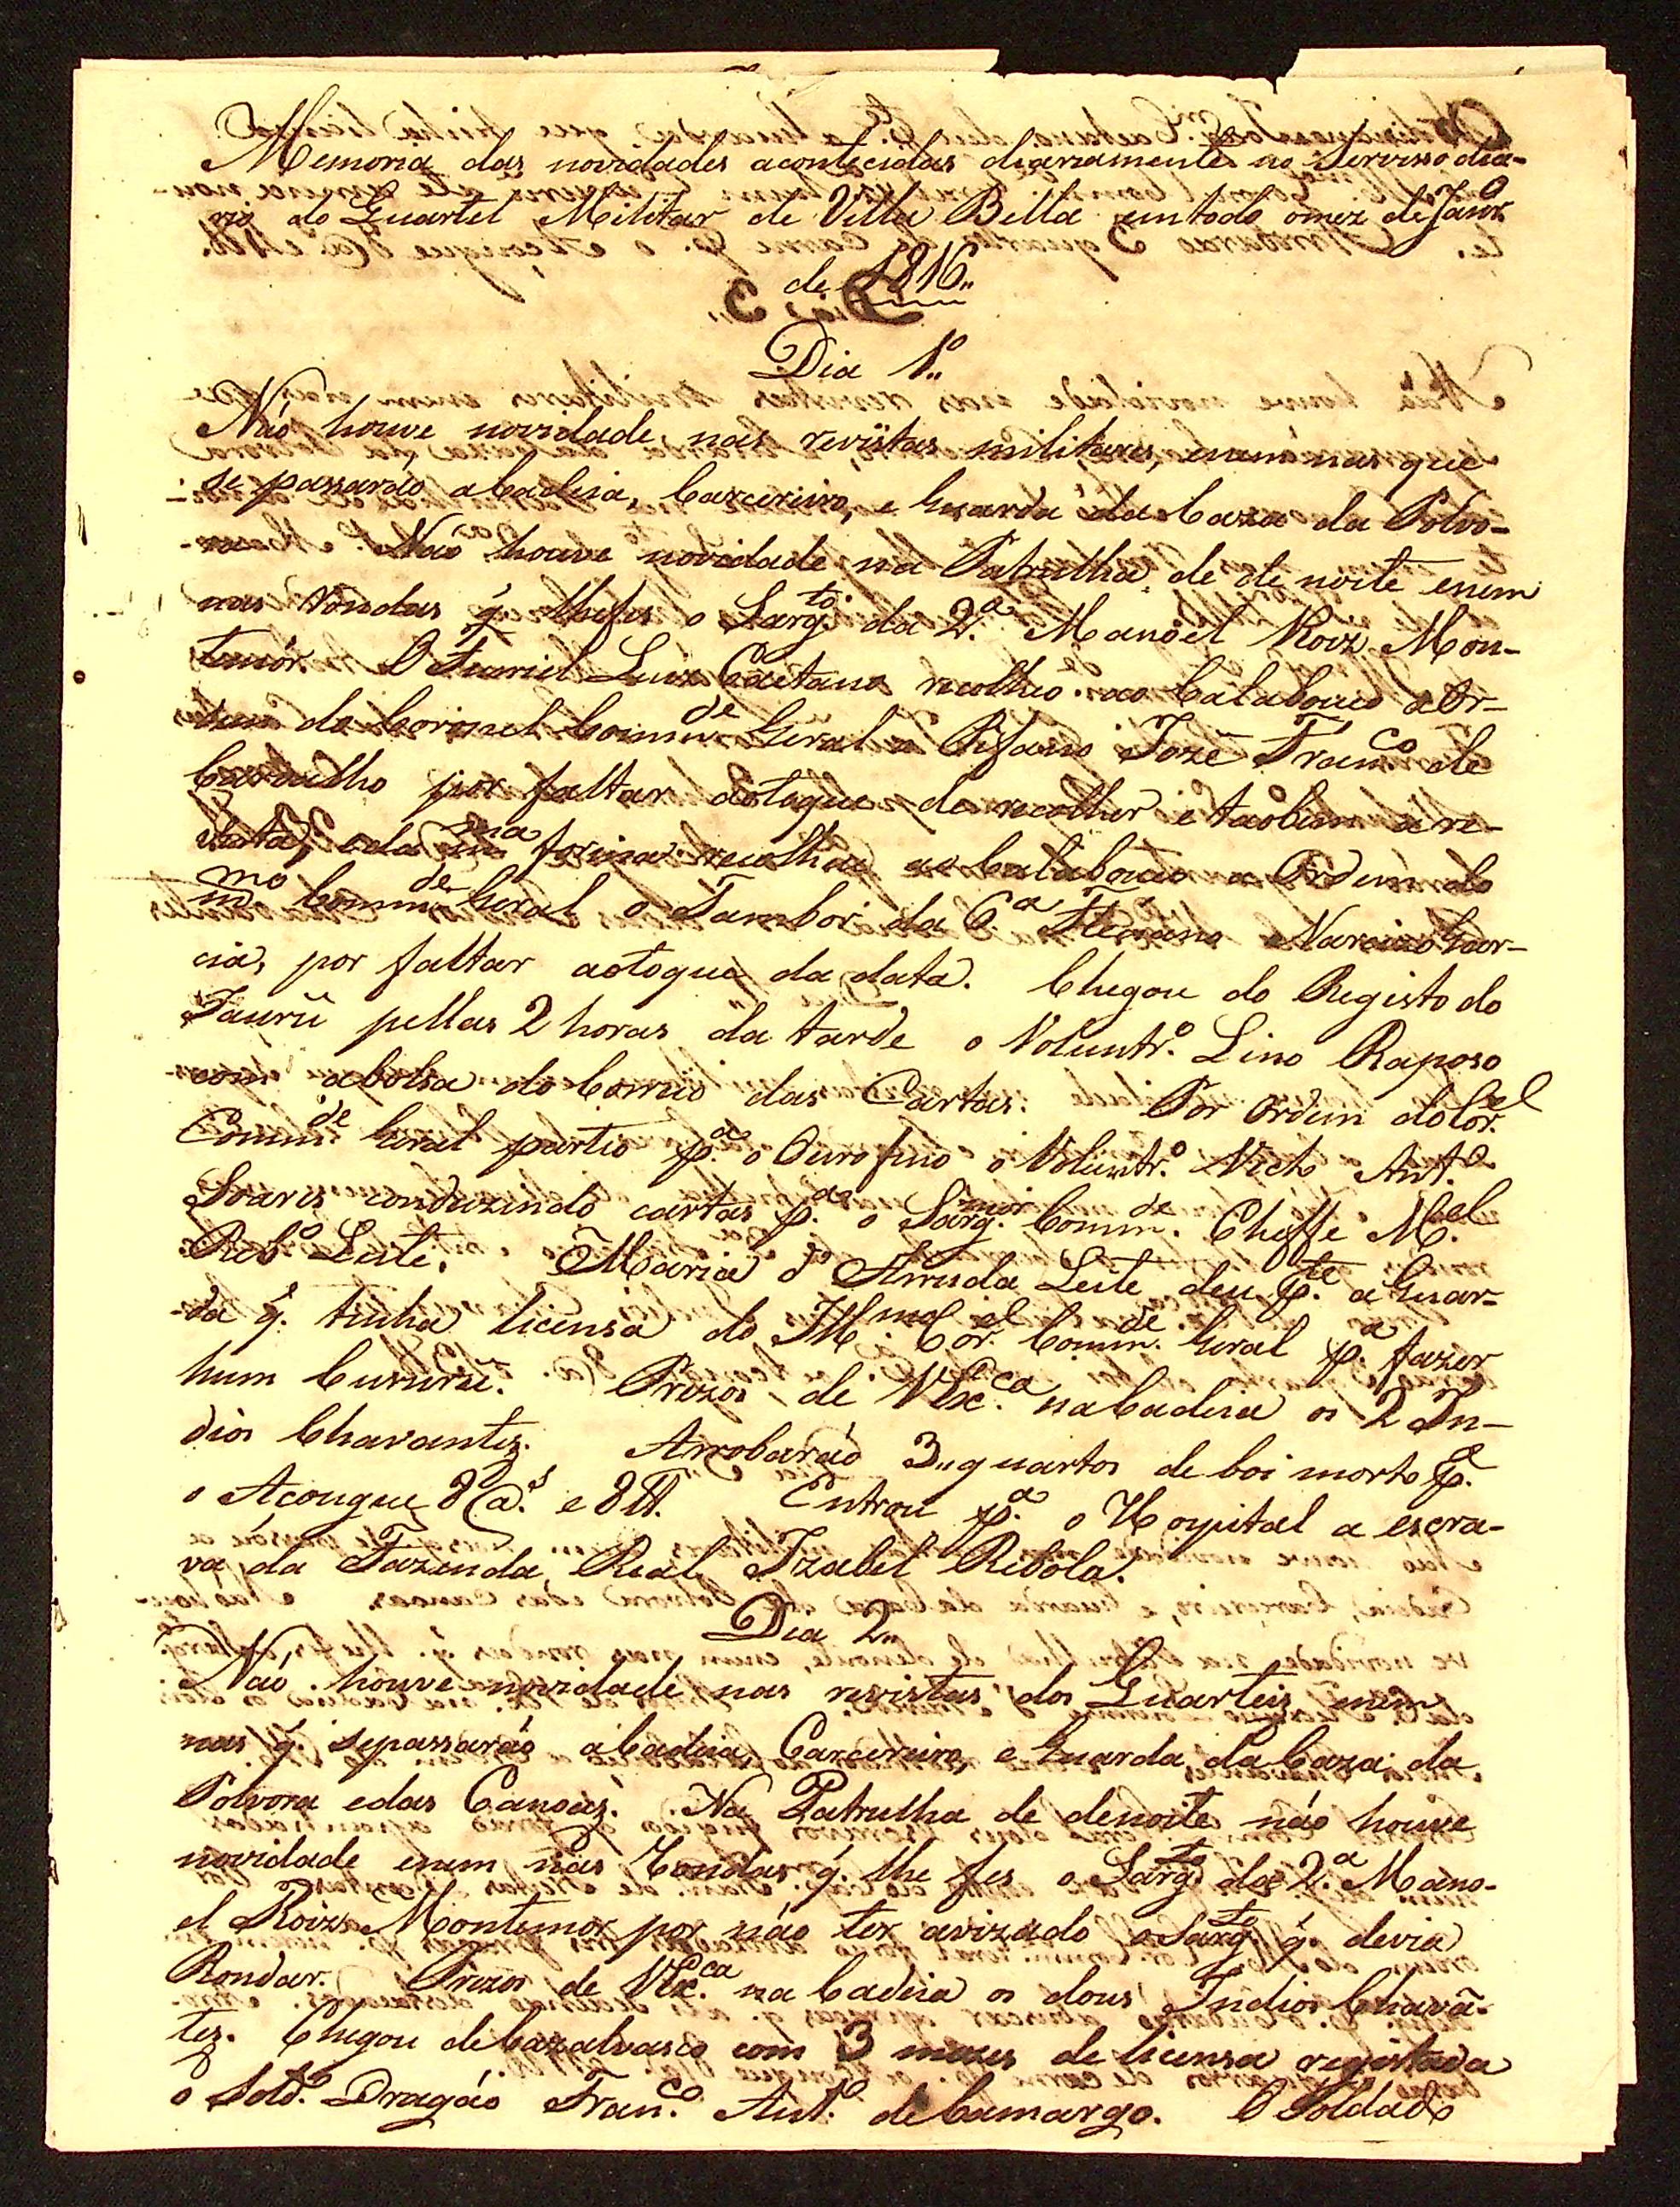 Memoria das novidades acontecidas diariamente no Servisso dia-
rio do Quartel Militar de Villa Bella em todo o mez de Janr.o
de 1816"
Dia 1.o
Náo houve novidade nas revistas militares, enem nas que
se passaráo a Cadeia, Carcereiro, e Guarda da Caza da Polvo-
ra. Náo houve novidade na Patrulha de de noite enem
nas Rondas q. lhe fes o Sarg.to da 2.a Manoel Roiz Mon-
temór. O Furriel Luiz Caetano recolheo ao Calabouço a Or-
dem do Coronel Comm.de Geral o Pifano Jozé Fran.co de
Carvalho por faltar aotoque de recolher e taobem a re-
vista, e da m.ma forma recolheo ao Calabouço a Ordem do
m.mo Comm.de Geral o Tambor da 6.a Narcizo Gar-
cia, por faltar aotoque da data. Chegou do Registo do
Jaurú pellas 2 horas da tarde o Voluntr.o Lino Raposo
com abolsa do Correio das Cartas. Por Ordem do Cor.el
Comm.de Geral partio p.a o Ouro fino o Voluntr.o Victo Ant.o
Soares conduzindo cartas p.a o Sarg.mor Comm.de Cheffe M.el
Reb.o Leite. Maria d' Arruda Leite deu p.te a Guar-
da q. tinha licensa do Ill.mo Cor.el Comm.de Geral p.a fazer
hum Cururú. Prezos de Vbc.ca na Cadeia os 2 In-
dios Chavantes. Arrobaráo 3" quartos de boi morto p.a
o Açougue 8 @.s e 8 lb. Entrou p.a o Hospital a escra-
va da Fazenda Real Izabel Rebola.
Dia 2"
Náo houve novidade nas revistas dos Quarteis enem
nas q. sepassaráo a Cadeia, Carcereiro, e Guarda da Caza da
Polvora edas Canoas. Na Patrulha de denoite náo houve
novidade enem nas Rondas q. lhe fes o Sarg.to da 2.a Mano-
el Roiz Montemor por náo ter avizado o Sarg.to q. devia
Rondar. Prezos de Vbc.ca na Cadeia os dous Indios Chavã-
tes. Chegou de Cazalvasco com 3 mezes de licensa registada
o Sold.o Dragáo Fran.co Ant.o de Camargo. O Soldado